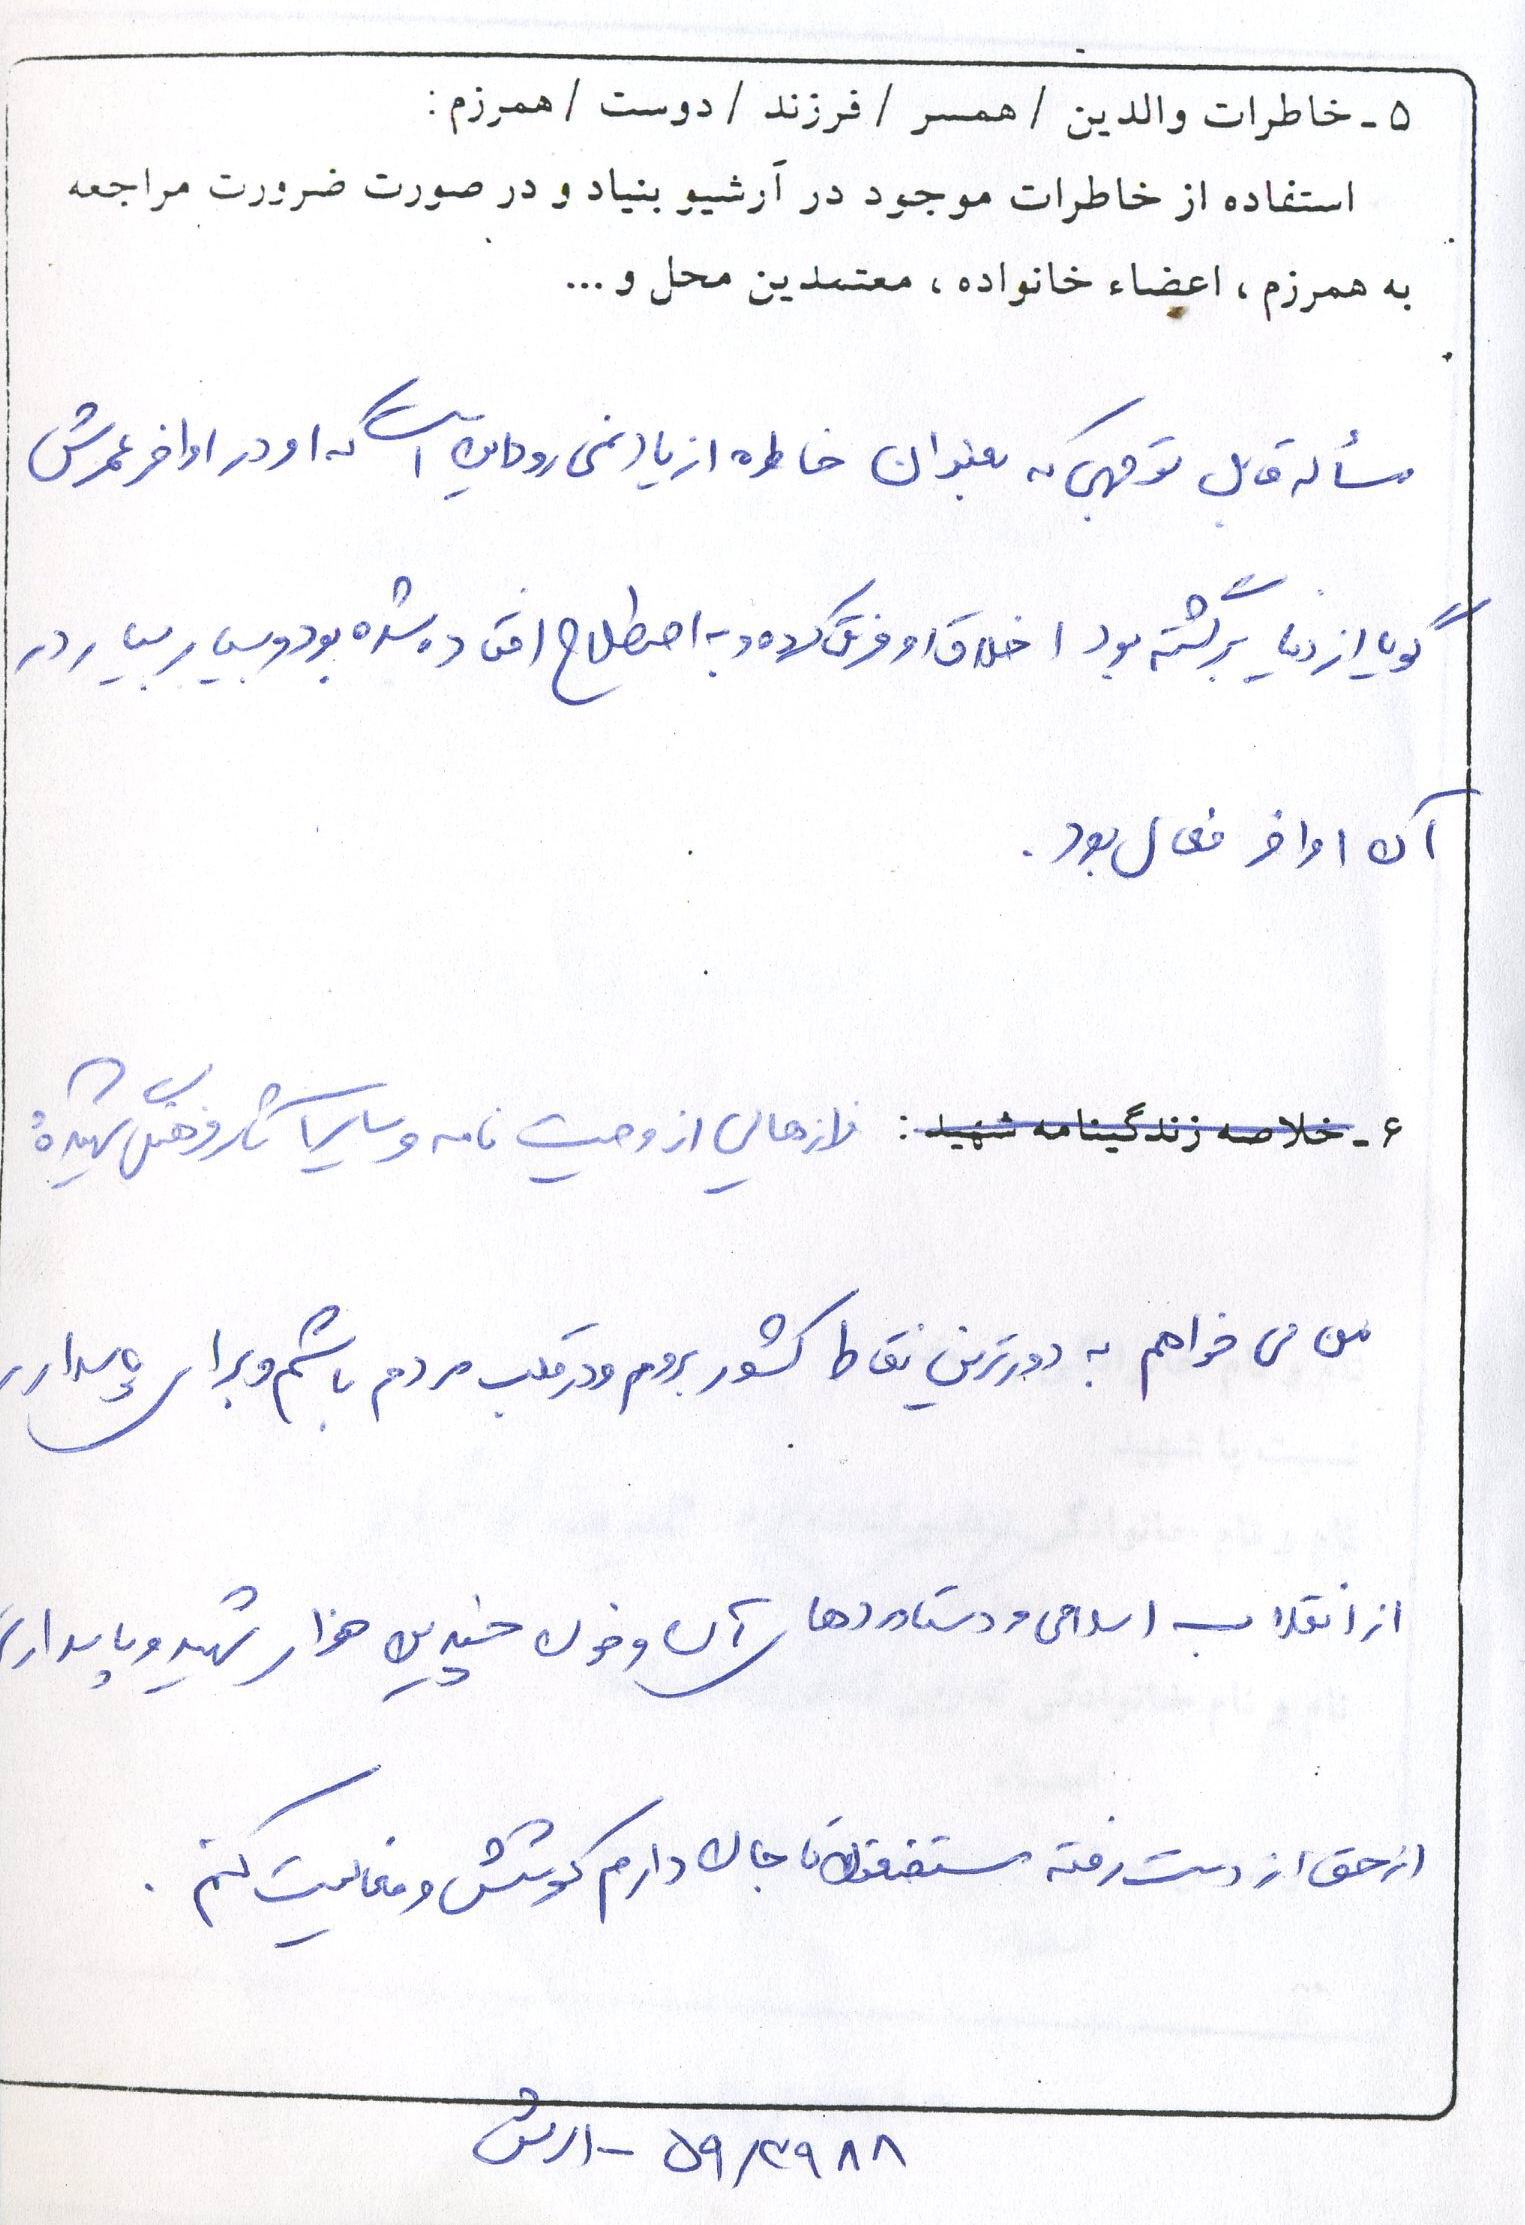 ۵ـ خاطرات والدین / همسر / فرزند / دوست / همرزم:
استفاده از خاطرات موجود در آرشیو بنیاد و در صورت ضرورت مراجعه
به همرزم، اعضاء خانواده، معتمدین محل و...
مسأله قابل توجهی که بعنوان خاطره از یاد نمی رود این است که او در اواخر عمرش
گویا از دنیا برگشته بود اخلاق او فرق کرده و به اصطلاح افتاده شده بود و بسیار بسیار در
آن اواخر فعال بود.
۶ـ خلاصه زندگینامه شهید: فرازهایی از وصیت نامه و سایر آثار فرهنگی شهید
من می خواهم به دورترین نقاط کشور بروم و در قلب مردم باشم و برای پاسداری
از انقلاب اسلامی و دستاوردهای آن و خون چندین هزار شهید و پاسداری
از حق از دست رفته مستضعفان تا جان دارم کوشش و فعالیت کنم.
۵۹/۲۹۸۸ - ارتش